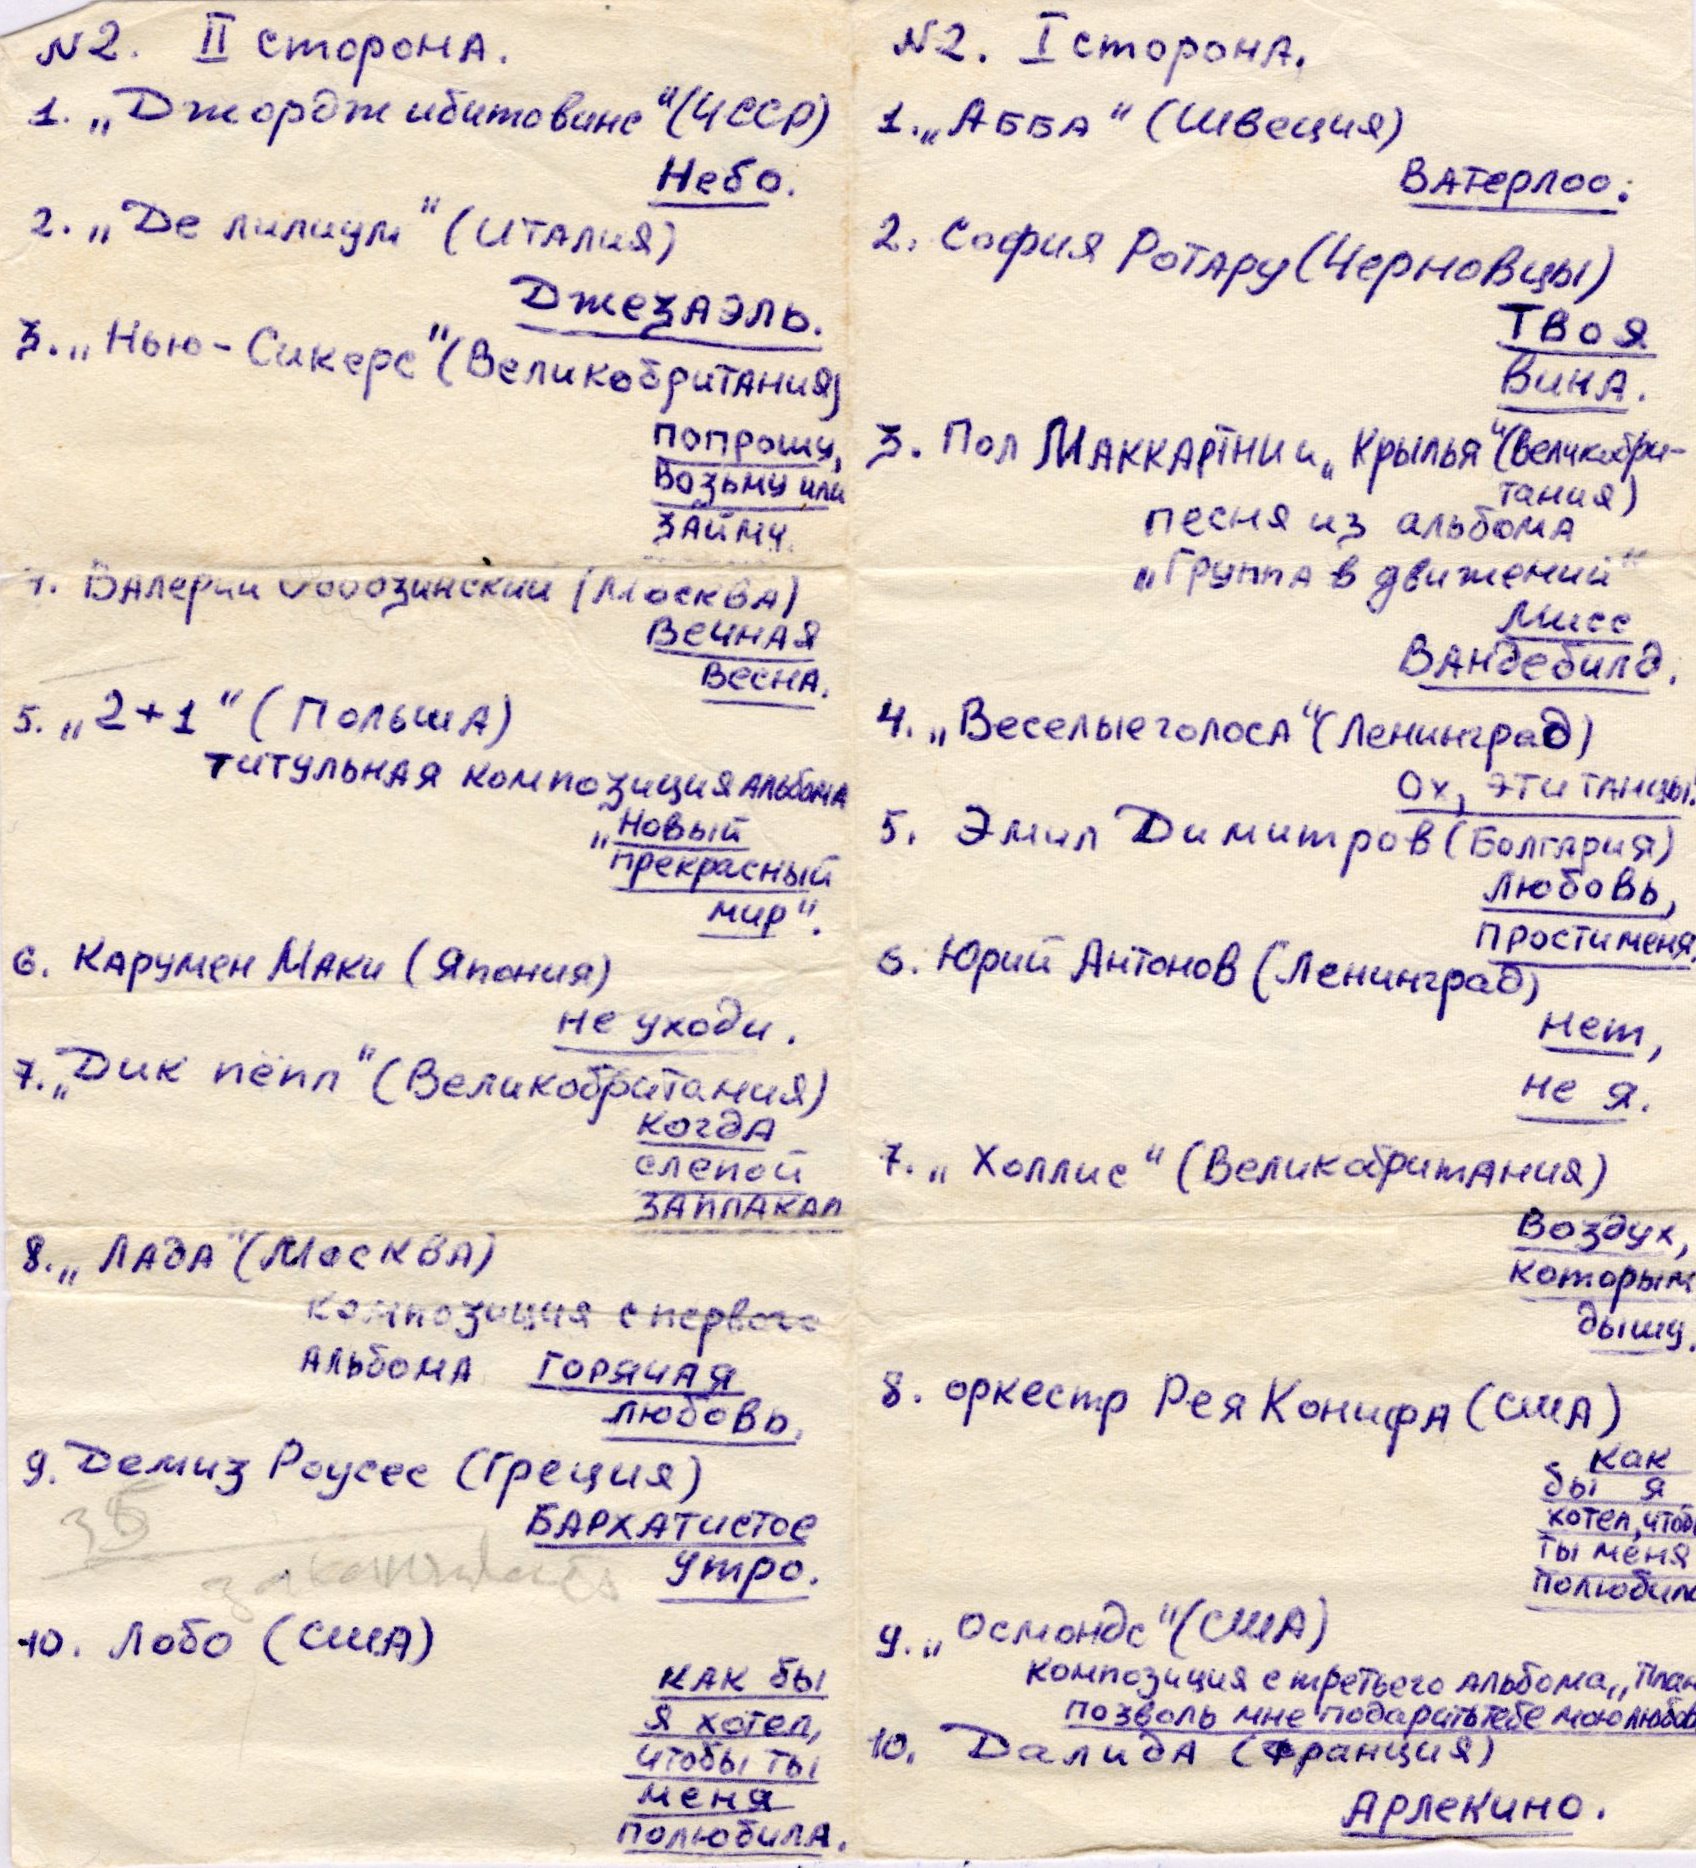 N2. II сторона.
1. „Джордж ибитовинс" (ЧССР)
Небо.
2. „Де лилиум" (Италия)
Джезаэль.
3. „Нью-Сикерс" (Великобритания)
попрошу,
возьму или
займу.
Валерий Ободзинский (Москва)
Вечная
весна.
5. „2+1" (Польша)
титульная композиция альбома
„Новый
прекрасный
мир".
6. Карумен Маки (Япония)
не уходи.
7. „Дик пёпл" (Великобритания)
когда
слепой
заплакал
8. „Лада" (Москва)
композиция с первого
альбома горячая
любовь.
9. Демиз Роусес (Греция)
35
Бархатистое
утро.
10. Лобо (США)
как бы
я хотел,
чтобы ты
меня
полюбила.
N2. I сторона.
1. „АББА" (Швеция)
Ватерлоо.
2. София Ротару (Черновцы)
Твоя
вина.
3. Пол Маккартни и „Крылья" (Великобри-
тания)
песня из альбома
„Группа в движений"
Мисс
Вандебилд.
4. „Веселые голоса" (Ленинград)
Ох, эти танцы.
5. Эмил Димитров (Болгария)
Любовь,
прости меня.
6. Юрий Антонов (Ленинград)
Нет,
не я.
7. „Холлис" (Великобритания)
Воздух,
которым
дышу.
8. оркестр Рея Конифа (США)
как
бы я
хотел, чтобы
ты меня
полюбила
9. „Осмондс" (США)
композиция с третьего альбома „План
позволь мне подарить тебе мою любов
10. Далида (Франция)
Арлекино.